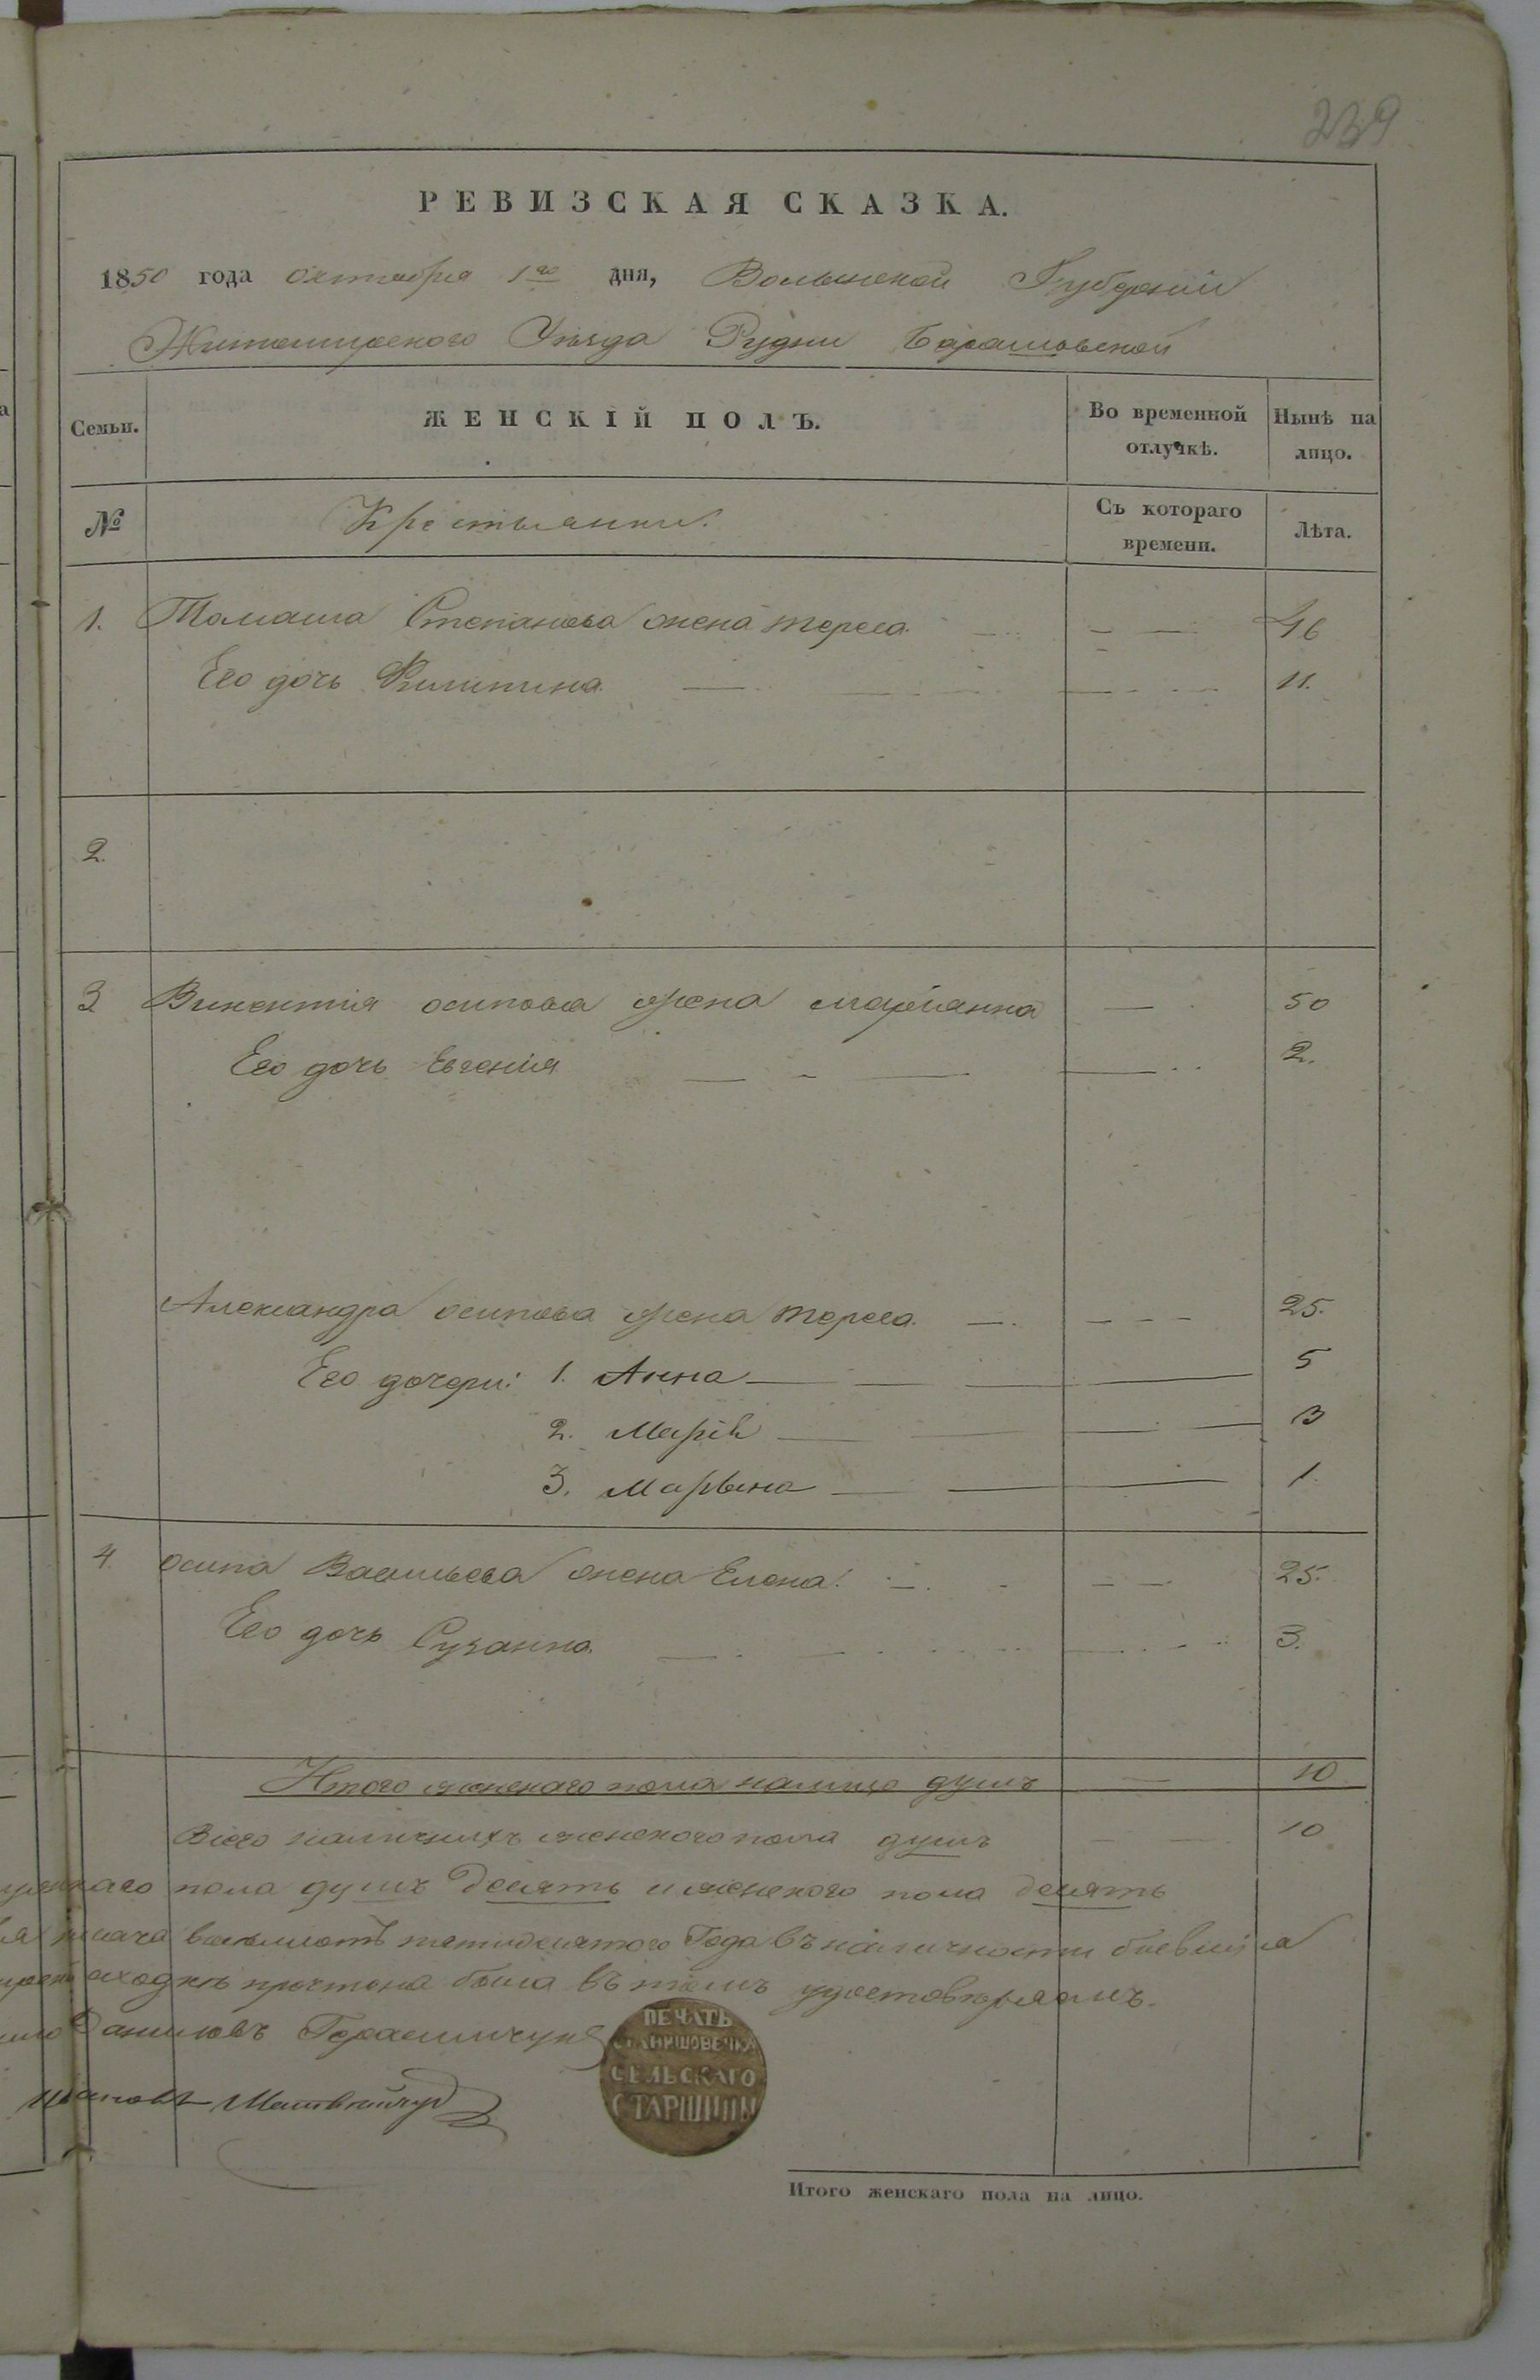 239
РЕВИЗСКАЯ СКАЗКА.
1850 года Октября 1го дня, Волынской Губерніи
Житомирского Уѣзда Рудни Барашовской
Семьи. ЖЕНСКІЙ ПОЛЪ. Во временной отлучкѣ. Нынѣ на лицо.
№ Крестьянки. Съ котораго времени. Лѣта.
1. Томаша Степанова жена тереса 46
Его дочь Филипина 11.
2.
3 Викентія осипова жена маріанна 50
Его дочь Евгенія 2.
Александра осипова жена тереса. 25.
Его дочери: 1. Анна 5
2. Марія 3
3. Марьяна 1.
4. осипа Васильева жена Елена. 25.
Его дочь Сузанна. 3.
Итого женскаго пола налицо душъ 10
Всего наличныхъ женского пола душъ 10
пола душъ десять и женского пола десять
пятидесятого Года въ наличности
сходкѣ прочтена была въ томъ удостовѣряемъ.
Даниловъ Герасимчукъ
Матвѣйчук
ПЕЧАТЬ
СЕЛЬСКАГО
СТАРШИНЫ
Итого женскаго пола на лицо.